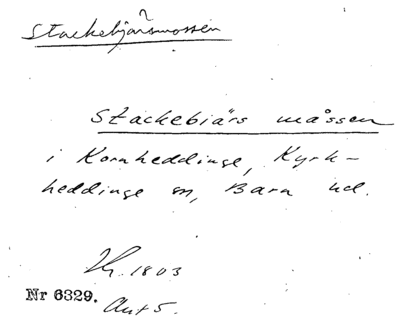 ?
Stackebjärsmossen
Stackebiärs måssen
i Kornheddinge, Kyrk-
heddinge sn, Bara hd.
1803
Nr 6329. Akt 5.